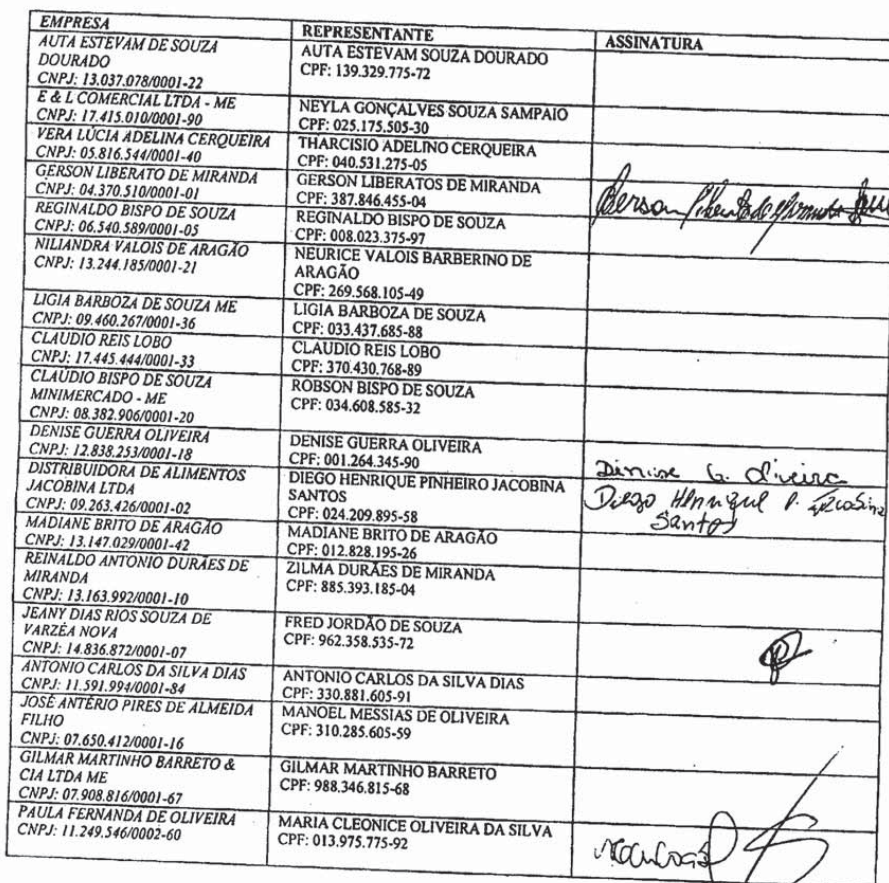 EMPRESA REPRESENTANTE ASSINATURA
AUTA ESTEVAM DE SOUZA
DOURADO
CNPJ: 13.037.078/0001-22
AUTA ESTEVAM SOUZA DOURADO
CPF: 139.329.775-72
E & L COMERCIAL LTDA - ME
CNPJ: 17.415.010/0001-90
NEYLA GONÇALVES SOUZA SAMPAIO
CPF: 025.175.505-30
VERA LÚCIA ADELINA CERQUEIRA
CNPJ: 05.816.544/0001-40
THARCISIO ADELINO CERQUEIRA
CPF: 040.531.275-05
GERSON LIBERATO DE MIRANDA
CNPJ: 04.370.510/0001-01
GERSON LIBERATOS DE MIRANDA
CPF: 387.846.455-04
Gerson
REGINALDO BISPO DE SOUZA
CNPJ: 06.540.589/0001-05
REGINALDO BISPO DE SOUZA
CPF: 008.023.375-97
NILIANDRA VALOIS DE ARAGÃO
CNPJ: 13.244.185/0001-21
NEURICE VALOIS BARBERINO DE
ARAGÃO
CPF: 269.568.105-49
LIGIA BARBOZA DE SOUZA ME
CNPJ: 09.460.267/0001-36
LIGIA BARBOZA DE SOUZA
CPF: 033.437.685-88
CLAUDIO REIS LOBO
CNPJ: 17.445.444/0001-33
CLAUDIO REIS LOBO
CPF: 370.430.768-89
CLAUDIO BISPO DE SOUZA
MINIMERCADO - ME
CNPJ: 08.382.906/0001-20
ROBSON BISPO DE SOUZA
CPF: 034.608.585-32
DENISE GUERRA OLIVEIRA
CNPJ: 12.838.253/0001-18
DENISE GUERRA OLIVEIRA
CPF: 001.264.345-90
Denise G. Oliveira
DISTRIBUIDORA DE ALIMENTOS
JACOBINA LTDA
CNPJ: 09.263.426/0001-02
DIEGO HENRIQUE PINHEIRO JACOBINA
SANTOS
CPF: 024.209.895-58
Diego Henrique P. Jacobina
Santos
MADIANE BRITO DE ARAGÃO
CNPJ: 13.147.029/0001-42
MADIANE BRITO DE ARAGÃO
CPF: 012.828.195-26
REINALDO ANTONIO DURÃES DE
MIRANDA
CNPJ: 13.163.992/0001-10
ZILMA DURÃES DE MIRANDA
CPF: 885.393.185-04
JEANY DIAS RIOS SOUZA DE
VARZÉA NOVA
CNPJ: 14.836.872/0001-07
FRED JORDÃO DE SOUZA
CPF: 962.358.535-72
ANTONIO CARLOS DA SILVA DIAS
CNPJ: 11.591.994/0001-84
ANTONIO CARLOS DA SILVA DIAS
CPF: 330.881.605-91
JOSÉ ANTÉRIO PIRES DE ALMEIDA
FILHO
CNPJ: 07.650.412/0001-16
MANOEL MESSIAS DE OLIVEIRA
CPF: 310.285.605-59
GILMAR MARTINHO BARRETO &
CIA LTDA ME
CNPJ: 07.908.816/0001-67
GILMAR MARTINHO BARRETO
CPF: 988.346.815-68
PAULA FERNANDA DE OLIVEIRA
CNPJ: 11.249.546/0002-60
MARIA CLEONICE OLIVEIRA DA SILVA
CPF: 013.975.775-92